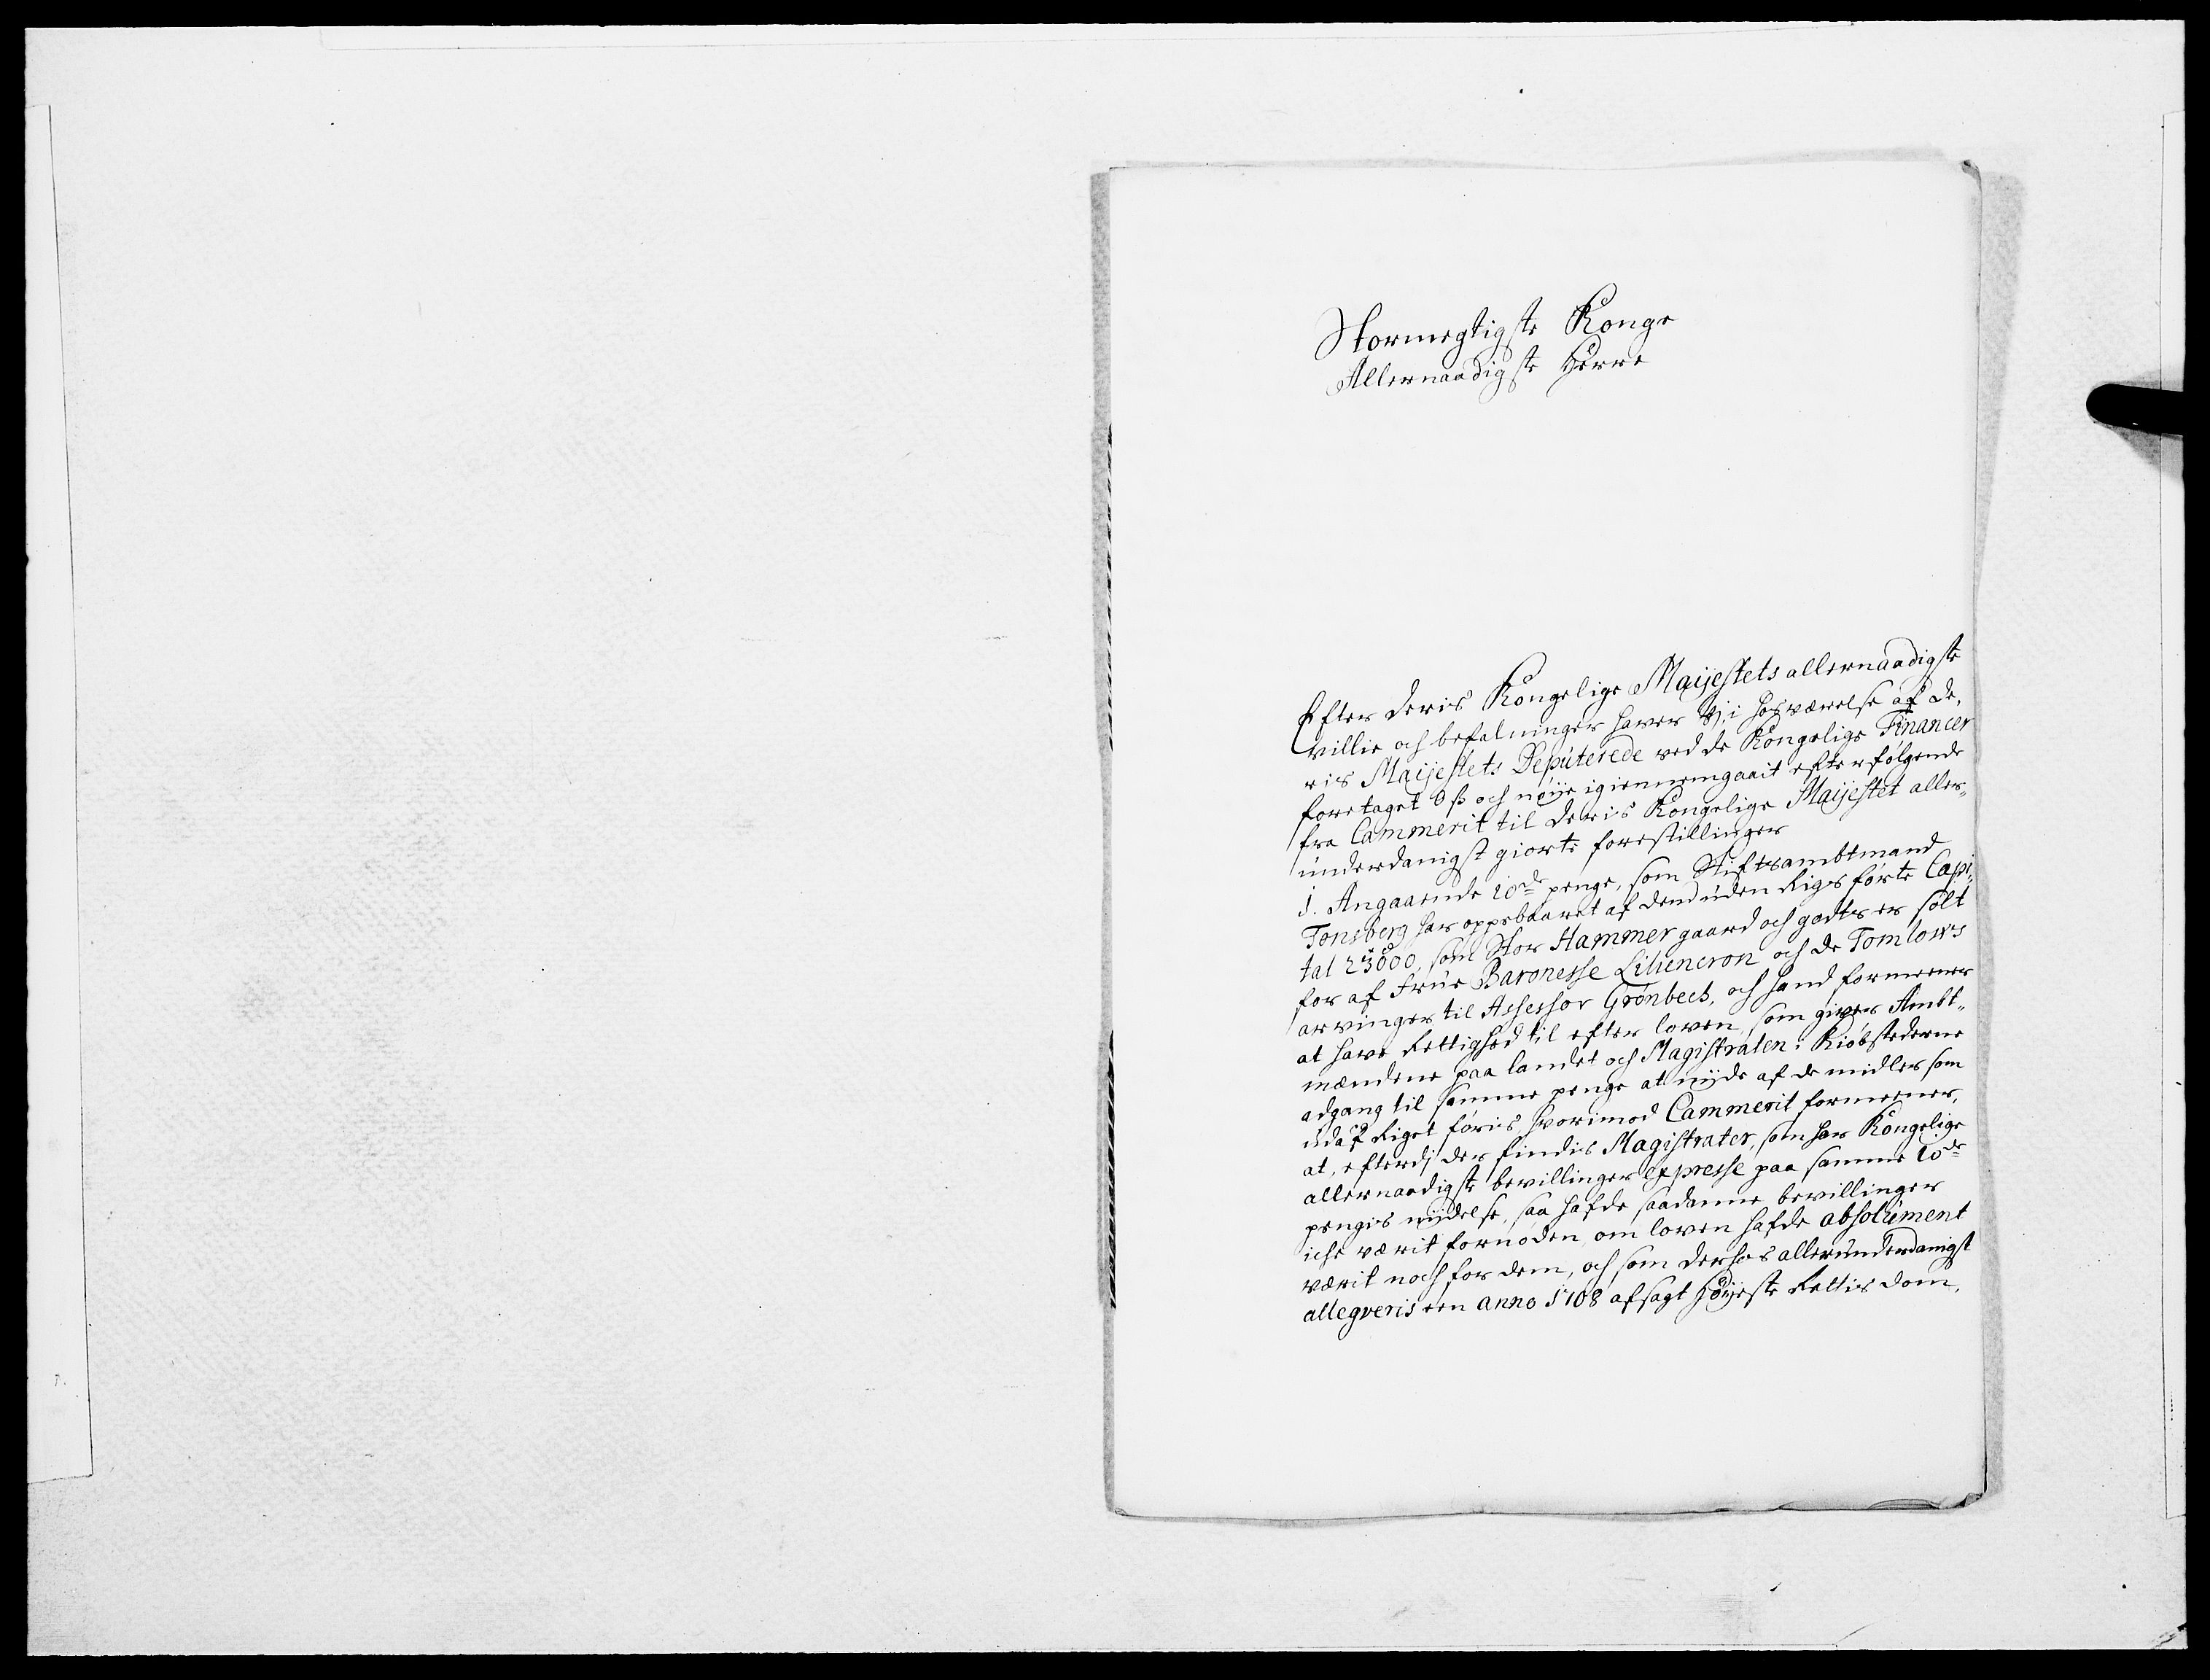 Stormegtigste Konge
Allernaadigste Herre
Efter deris Kongelige Maijestets allernaadigste
villie och befalninger haver vj, i hosværelse af de,
ris Maijestets Deputerede ved de Kongelige Financer
foretaget os och nøije igiennemgaait efterfølgende
fra Cammerit til deris Kongelige Maijestet aller„
underdanigst giorte forestillinger
1. Angaaende 10de penge, som Stiftsambtmand
Tonsberg har oppebaaret af dend uden Riges førte Capi„
tal 23000, som Stor Hammer gaard och godts er solt
for af Frue Baronesse Liliencron och de Tomlows
arvinger til Assessor Grønbech, och hand formeener
at have Rettighed til efter loven, som giver Ambt„
mændene paa landet och Magistraten i Kiøbstederne
adgang til samme penge at nyde af de midler som
udaf Riget føris, hvorimod Cammerit formeener,
at, efterdj der findis Magistrater, som har Kongelige
allernaadigste bevillinger expresse paa samme 10de
pengis nydelse, saa hafde saadanne bevillinger
iche værit fornøden, om loven hafde absolument
værit noch for dem, och som derhos allerunderdanigst
allegveris een anno 1708 afsagt Høijeste Rettis dom,